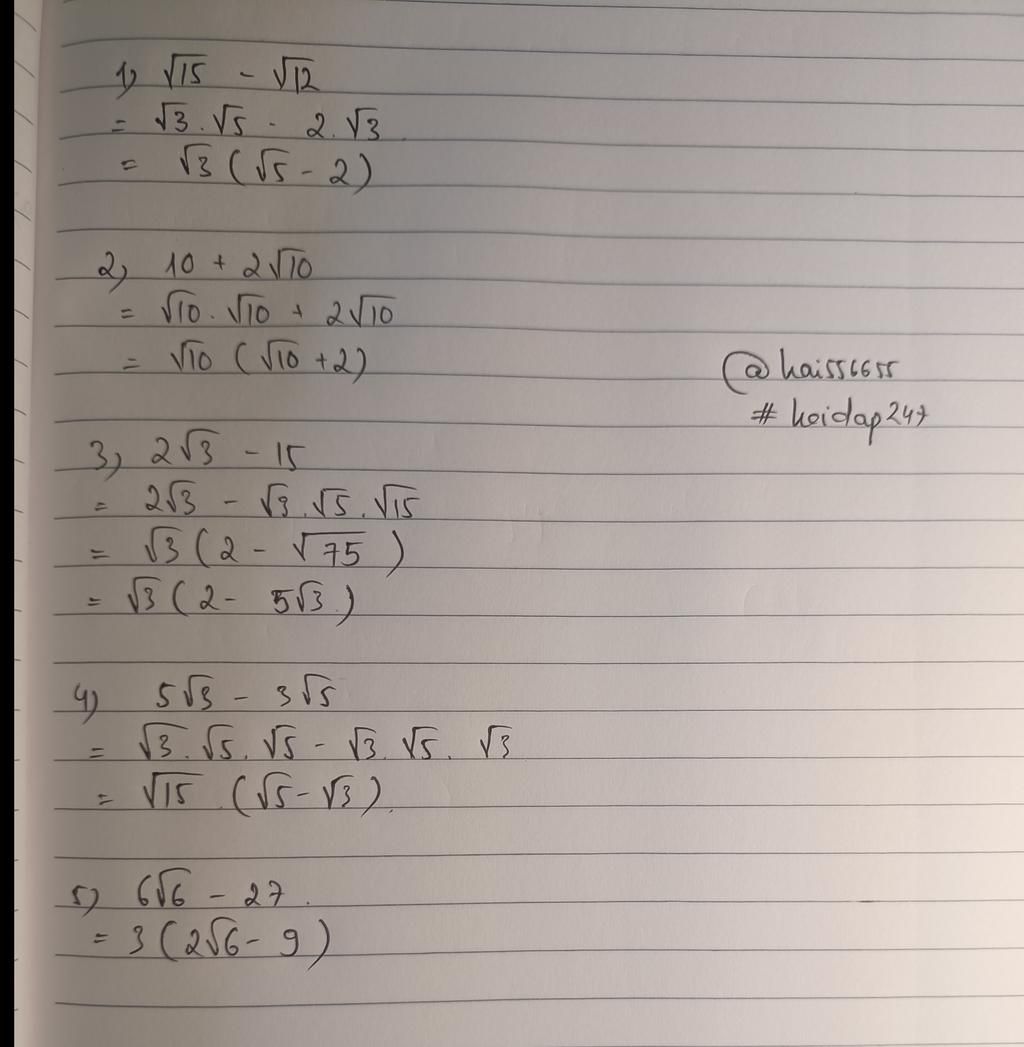 1) √15 - √12
= √3.√5 - 2.√3
= √3 (√5 - 2)
2) 10 + 2√10
= √10.√10 + 2√10
= √10 (√10 + 2)
@hai556655
# hoidap247
3) 2√3 - 15
= 2√3 - √3.√5.√15
= √3 (2 - √75)
= √3 (2 - 5√3)
4) 5√3 - 3√5
= √3.√5.√5 - √3.√5.√3
= √15 (√5 - √3).
5) 6√6 - 27.
= 3 (2√6 - 9)